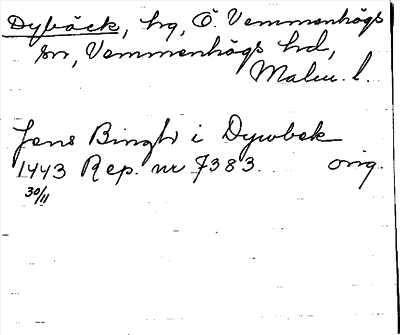 Dybäck, hg, Ö. Vemmenhögs
sn, Vemmenhögs hd,
Malm. l.
Jens Bingh i Dywbek
1443 Rep. nr 7383. orig.
30/11